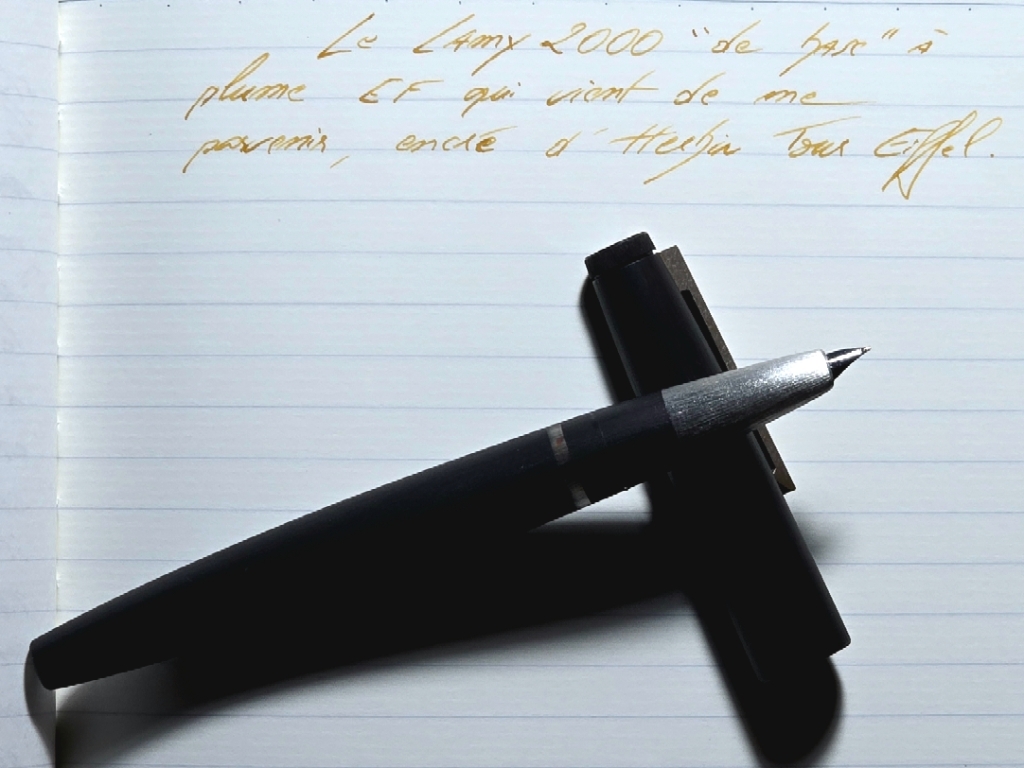 Le Lamy 2000 "de base" à
plume EF qui vient de me
parvenir, encré d'Herbin Tour Eiffel.